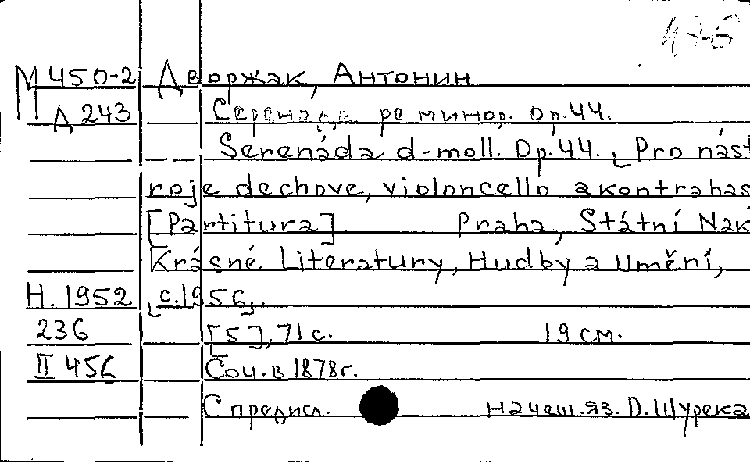 М 450-2 Дворжак, Антонин
Д 243 Серенада ре минор. Op.44.
Serenáda d-moll. Op.44. Pro nást
roje dechove, violoncello a kontrabas
[Partitura] Praha, Státní Nak
Krásné Literatury, Hudby a Umění,
Н. 1952 [c.1956].
236 [5], 71 с. 19 см.
II 456 Соч. в 1878г.
С предисл. на чеш. яз. О. Шурека